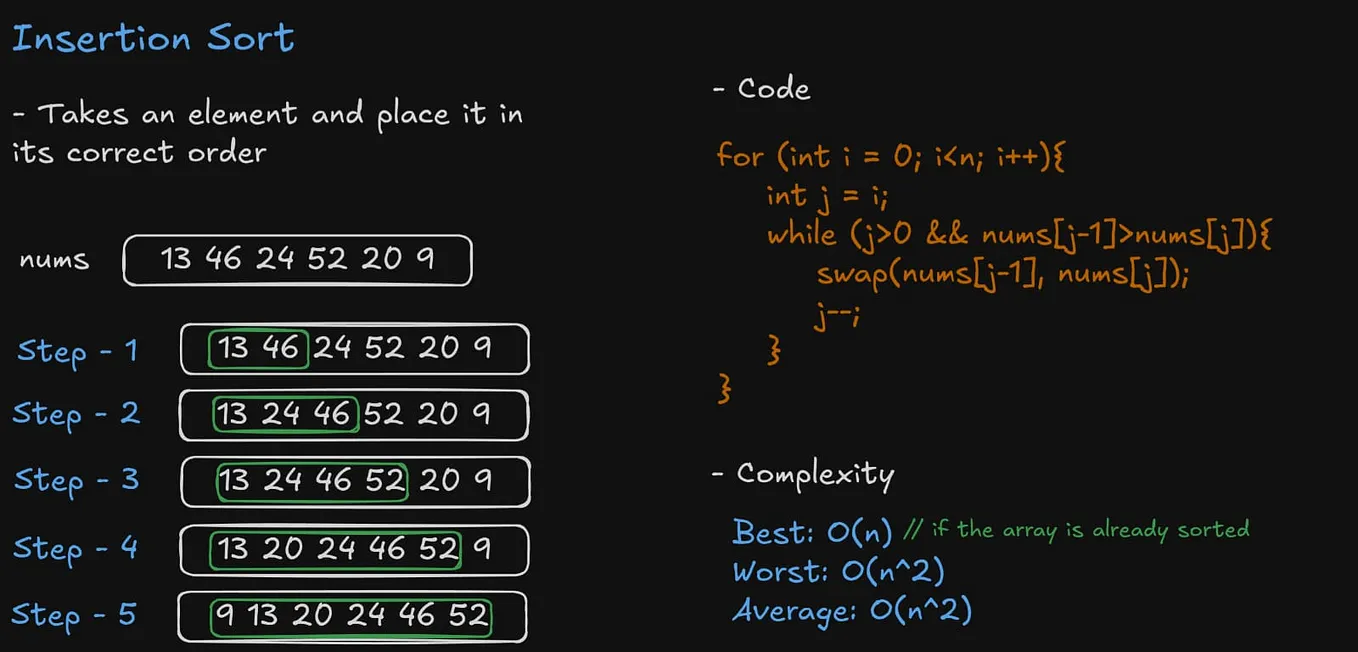 Insertion Sort
- Takes an element and place it in
its correct order
nums 13 46 24 52 20 9
Step - 1 13 46 24 52 20 9
Step - 2 13 24 46 52 20 9
Step - 3 13 24 46 52 20 9
Step - 4 13 20 24 46 52 9
Step - 5 9 13 20 24 46 52
- Code
for (int i = 0; i<n; i++){
int j = i;
while (j>0 && nums[j-1]>nums[j]){
swap(nums[j-1], nums[j]);
j--;
}
}
- Complexity
Best: O(n) // if the array is already sorted
Worst: O(n^2)
Average: O(n^2)